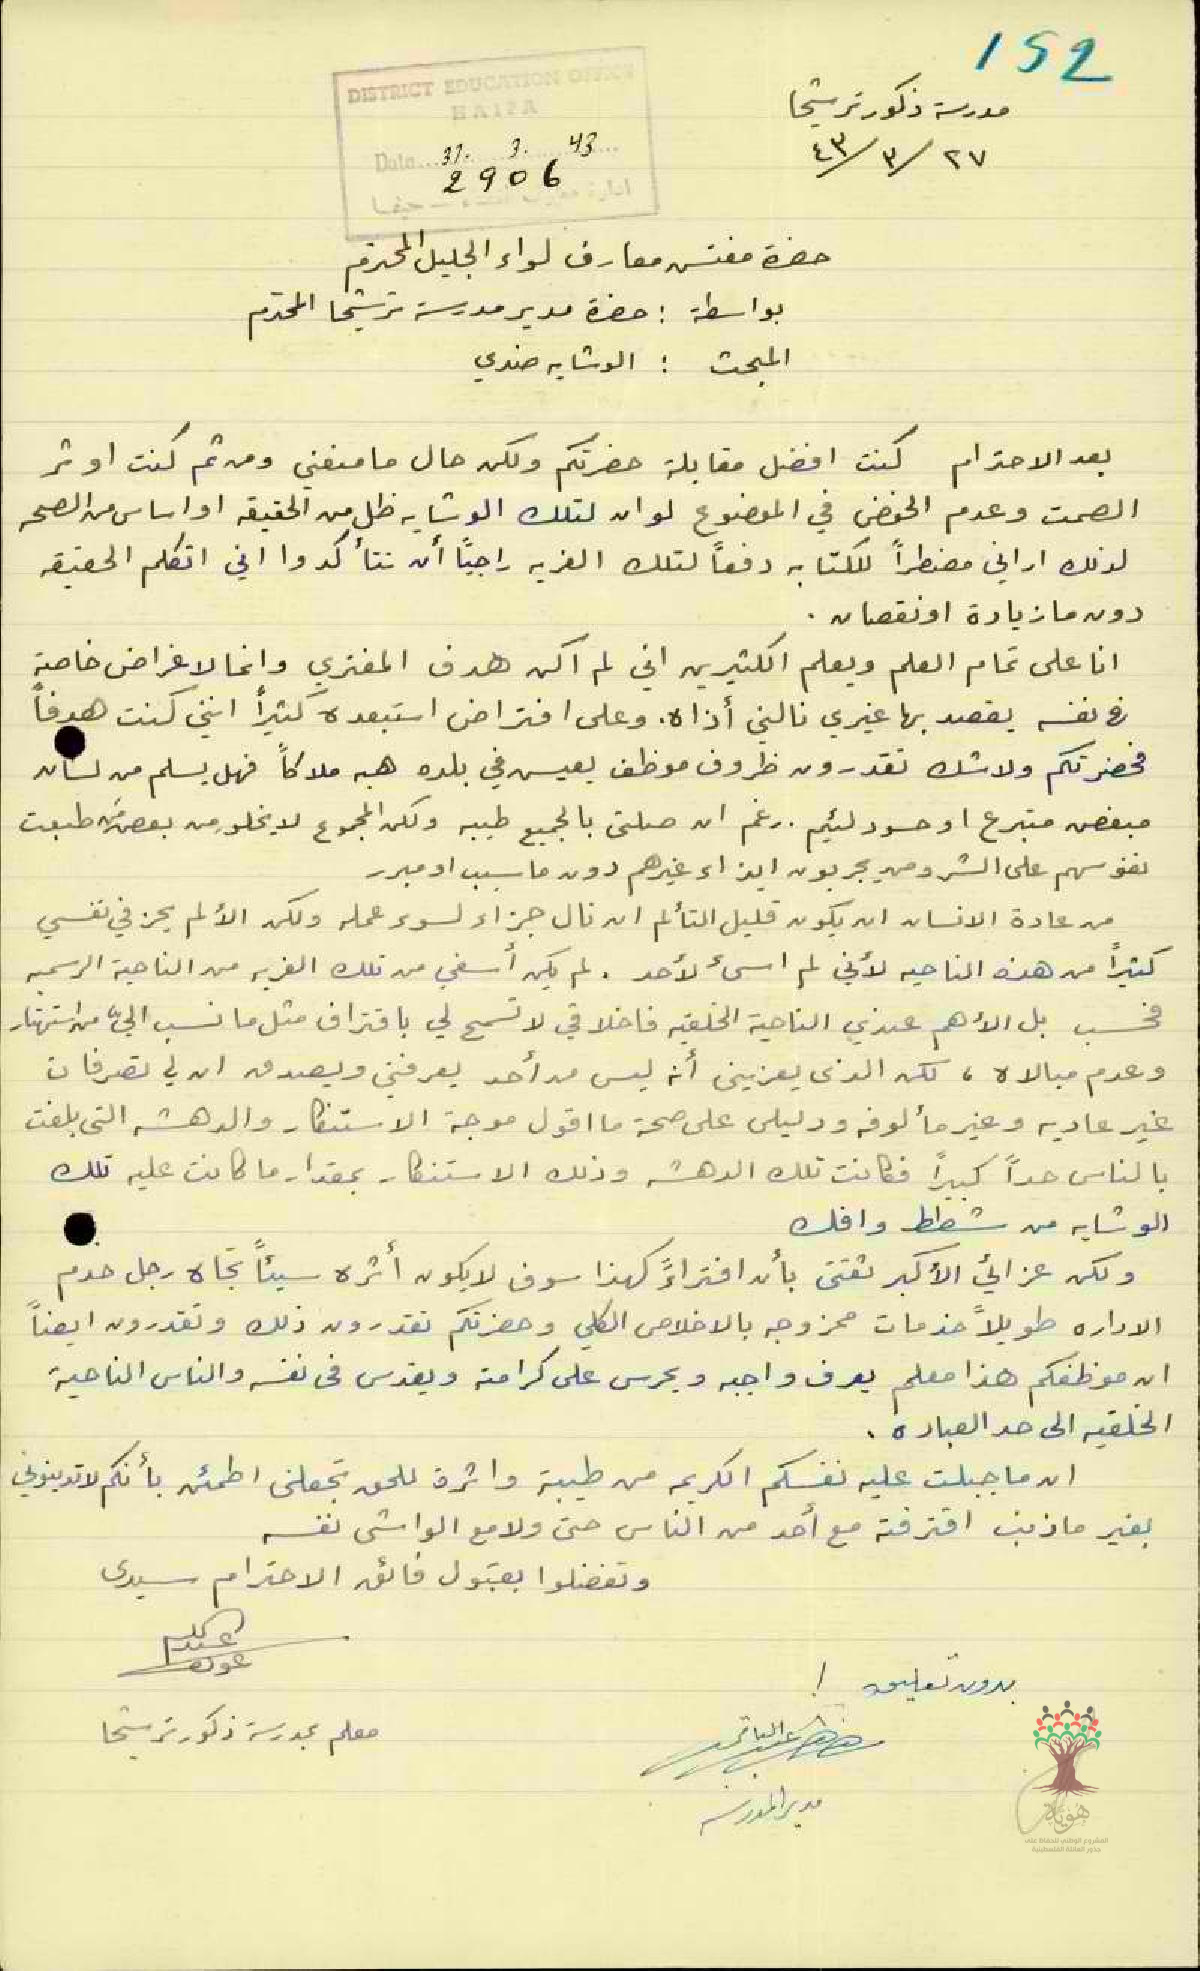 152
مدرسة ذكور ترشيحا
٢٧ / ٣ / ٤٣
DISTRICT EDUCATION OFFICE
HAIFA
Date 31. 3. 43
2906
ادارة معارف اللواء — حيفا
حضرة مفتش معارف لواء الجليل المحترم
بواسطة : حضرة مدير مدرسة ترشيحا المحترم
المبحث : الوشايه ضدي
بعد الاحترام كنت افضل مقابلة حضرتكم ولكن حال ما منعني ومن ثم كنت اوثر
الصمت وعدم الخوض في الموضوع لو ان لتلك الوشايه ظل من الحقيقه او اساس من الصحه
لذلك اراني مضطراً للكتابه دفعاً لتلك الفريه راجيًا أن تتأكدوا اني اتكلم الحقيقه
دون ما زيادة او نقصان .
انا على تمام العلم ويعلم الكثيرين اني لم اكن هدف المفتري وانما لاغراض خاصة
في نفسه يقصد بها غيري نالني أذاه. وعلى افتراض استبعده كثيراً انني كنت هدفاً
فحضرتكم ولا شك تقدرون ظروف موظف يعيش في بلده هبه ملاكاً فهل يسلم من لسان
مبغض متبرع او حسود لئيم . رغم ان صلتي بالجميع طيبه ولكن المجموع لا يخلو من بعض من طبعت
نفوسهم على الشر ومن يجربون ايذاء غيرهم دون ما سبب او مبرر
من عادة الانسان ان يكون قليل التألم ان نال جزاء لسوء عمله ولكن الألم يحز في نفسي
كثيراً من هذه الناحيه لأني لم اسئ لأحد . لم يكن أسفي من تلك الفريه من الناحية الرسميه
فحسب بل الأهم عندي الناحية الخلقيه فاخلاقي لا تسمح لي باقتراف مثل ما نسب اليّ من استهتار
وعدم مبالاه ، لكن الذي يعزيني أنه ليس من أحد يعرفني ويصدق ان لي تصرفات
غير عاديه وغير مألوفه ودليلي على صحة ما اقول موجة الاستنكار والدهشه التي بلغت
بالناس حداً كبيراً فكانت تلك الدهشه وذلك الاستنكار بمقدار ما كانت عليه تلك
الوشايه من شطط وافك
ولكن عزائي الأكبر ثقتي بأن افتراءً كهذا سوف لا يكون أثره سيئاً تجاه رجل خدم
الاداره طويلاً خدمات ممزوجه بالاخلاص الكلي وحضرتكم تقدرون ذلك وتقدرون ايضاً
ان موظفكم هذا معلم يعرف واجبه ويحرص على كرامته ويقدس في نفسه والناس الناحية
الخلقيه الى حد العباده .
ان ما جبلت عليه نفسكم الكريمه من طيبة واثرة للحق تجعلني اطمئن بأنكم لا تدينوني
بغير ما ذنب اقترفته مع أحد من الناس حتى ولا مع الواشي نفسه
وتفضلوا بقبول فائق الاحترام سيدي
بدون تعليق !
معلم بمدرسة ذكور ترشيحا
مدير المدرسه
هوية
المشروع الوطني للحفاظ على
جذور العائلة الفلسطينية